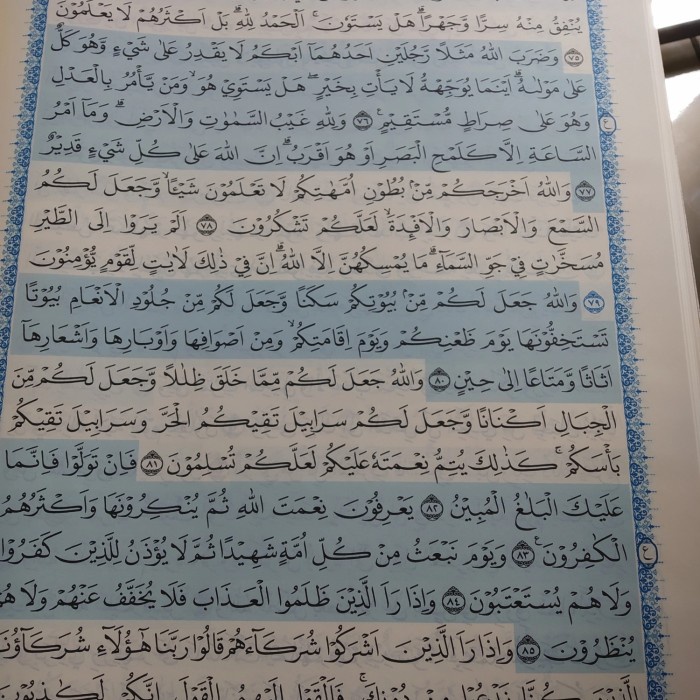 يُنْفِقُ مِنْهُ سِرًّا وَّجَهْرًا ؕ هَلْ يَسْتَوٗنَ ؕ اَلْحَمْدُ لِلّٰهِ ؕ بَلْ اَكْثَرُهُمْ لَا يَعْلَمُوْنَ
﴿۷۵﴾ وَضَرَبَ اللّٰهُ مَثَلًا رَّجُلَيْنِ اَحَدُهُمَاۤ اَبْكَمُ لَا يَقْدِرُ عَلٰى شَيْءٍ وَّهُوَ كَلٌّ
عَلٰى مَوْلٰىهُ ۙ اَيْنَمَا يُوَجِّهْهُّ لَا يَاْتِ بِخَيْرٍ ؕ هَلْ يَسْتَوِيْ هُوَ ۙ وَمَنْ يَّاْمُرُ بِالْعَدْلِ
وَهُوَ عَلٰى صِرَاطٍ مُّسْتَقِيْمٍ ﴿۷۶﴾ وَلِلّٰهِ غَيْبُ السَّمٰوٰتِ وَالْاَرْضِ ؕ وَمَاۤ اَمْرُ
السَّاعَةِ اِلَّا كَلَمْحِ الْبَصَرِ اَوْ هُوَ اَقْرَبُ ؕ اِنَّ اللّٰهَ عَلٰى كُلِّ شَيْءٍ قَدِيْرٌ
﴿۷۷﴾ وَاللّٰهُ اَخْرَجَكُمْ مِّنْۢ بُطُوْنِ اُمَّهٰتِكُمْ لَا تَعْلَمُوْنَ شَيْـًٔا ۙ وَّجَعَلَ لَكُمُ
السَّمْعَ وَالْاَبْصَارَ وَالْاَفْـِٕدَةَ ۙ لَعَلَّكُمْ تَشْكُرُوْنَ ﴿۷۸﴾ اَلَمْ يَرَوْا اِلَى الطَّيْرِ
مُسَخَّرٰتٍ فِيْ جَوِّ السَّمَآءِ ؕ مَا يُمْسِكُهُنَّ اِلَّا اللّٰهُ ؕ اِنَّ فِيْ ذٰلِكَ لَاٰيٰتٍ لِّقَوْمٍ يُّؤْمِنُوْنَ
﴿۷۹﴾ وَاللّٰهُ جَعَلَ لَكُمْ مِّنْۢ بُيُوْتِكُمْ سَكَنًا وَّجَعَلَ لَكُمْ مِّنْ جُلُوْدِ الْاَنْعَامِ بُيُوْتًا
تَسْتَخِفُّوْنَهَا يَوْمَ ظَعْنِكُمْ وَيَوْمَ اِقَامَتِكُمْ ۙ وَمِنْ اَصْوَافِهَا وَاَوْبَارِهَا وَاَشْعَارِهَاۤ
اَثَاثًا وَّمَتَاعًا اِلٰى حِيْنٍ ﴿۸۰﴾ وَاللّٰهُ جَعَلَ لَكُمْ مِّمَّا خَلَقَ ظِلٰلًا وَّجَعَلَ لَكُمْ مِّنَ
الْجِبَالِ اَكْنَانًا وَّجَعَلَ لَكُمْ سَرَابِيْلَ تَقِيْكُمُ الْحَرَّ وَسَرَابِيْلَ تَقِيْكُمْ
بَاْسَكُمْ ؕ كَذٰلِكَ يُتِمُّ نِعْمَتَهٗ عَلَيْكُمْ لَعَلَّكُمْ تُسْلِمُوْنَ ﴿۸۱﴾ فَاِنْ تَوَلَّوْا فَاِنَّمَا
عَلَيْكَ الْبَلٰغُ الْمُبِيْنُ ﴿۸۲﴾ يَعْرِفُوْنَ نِعْمَتَ اللّٰهِ ثُمَّ يُنْكِرُوْنَهَا وَاَكْثَرُهُمُ
الْكٰفِرُوْنَ ﴿۸۳﴾ وَيَوْمَ نَبْعَثُ مِنْ كُلِّ اُمَّةٍ شَهِيْدًا ثُمَّ لَا يُؤْذَنُ لِلَّذِيْنَ كَفَرُوْا
وَلَا هُمْ يُسْتَعْتَبُوْنَ ﴿۸۴﴾ وَاِذَا رَاَ الَّذِيْنَ ظَلَمُوا الْعَذَابَ فَلَا يُخَفَّفُ عَنْهُمْ وَلَا هُمْ
يُنْظَرُوْنَ ﴿۸۵﴾ وَاِذَا رَاَ الَّذِيْنَ اَشْرَكُوْا شُرَكَآءَهُمْ قَالُوْا رَبَّنَا هٰۤؤُلَآءِ شُرَكَآؤُنَا